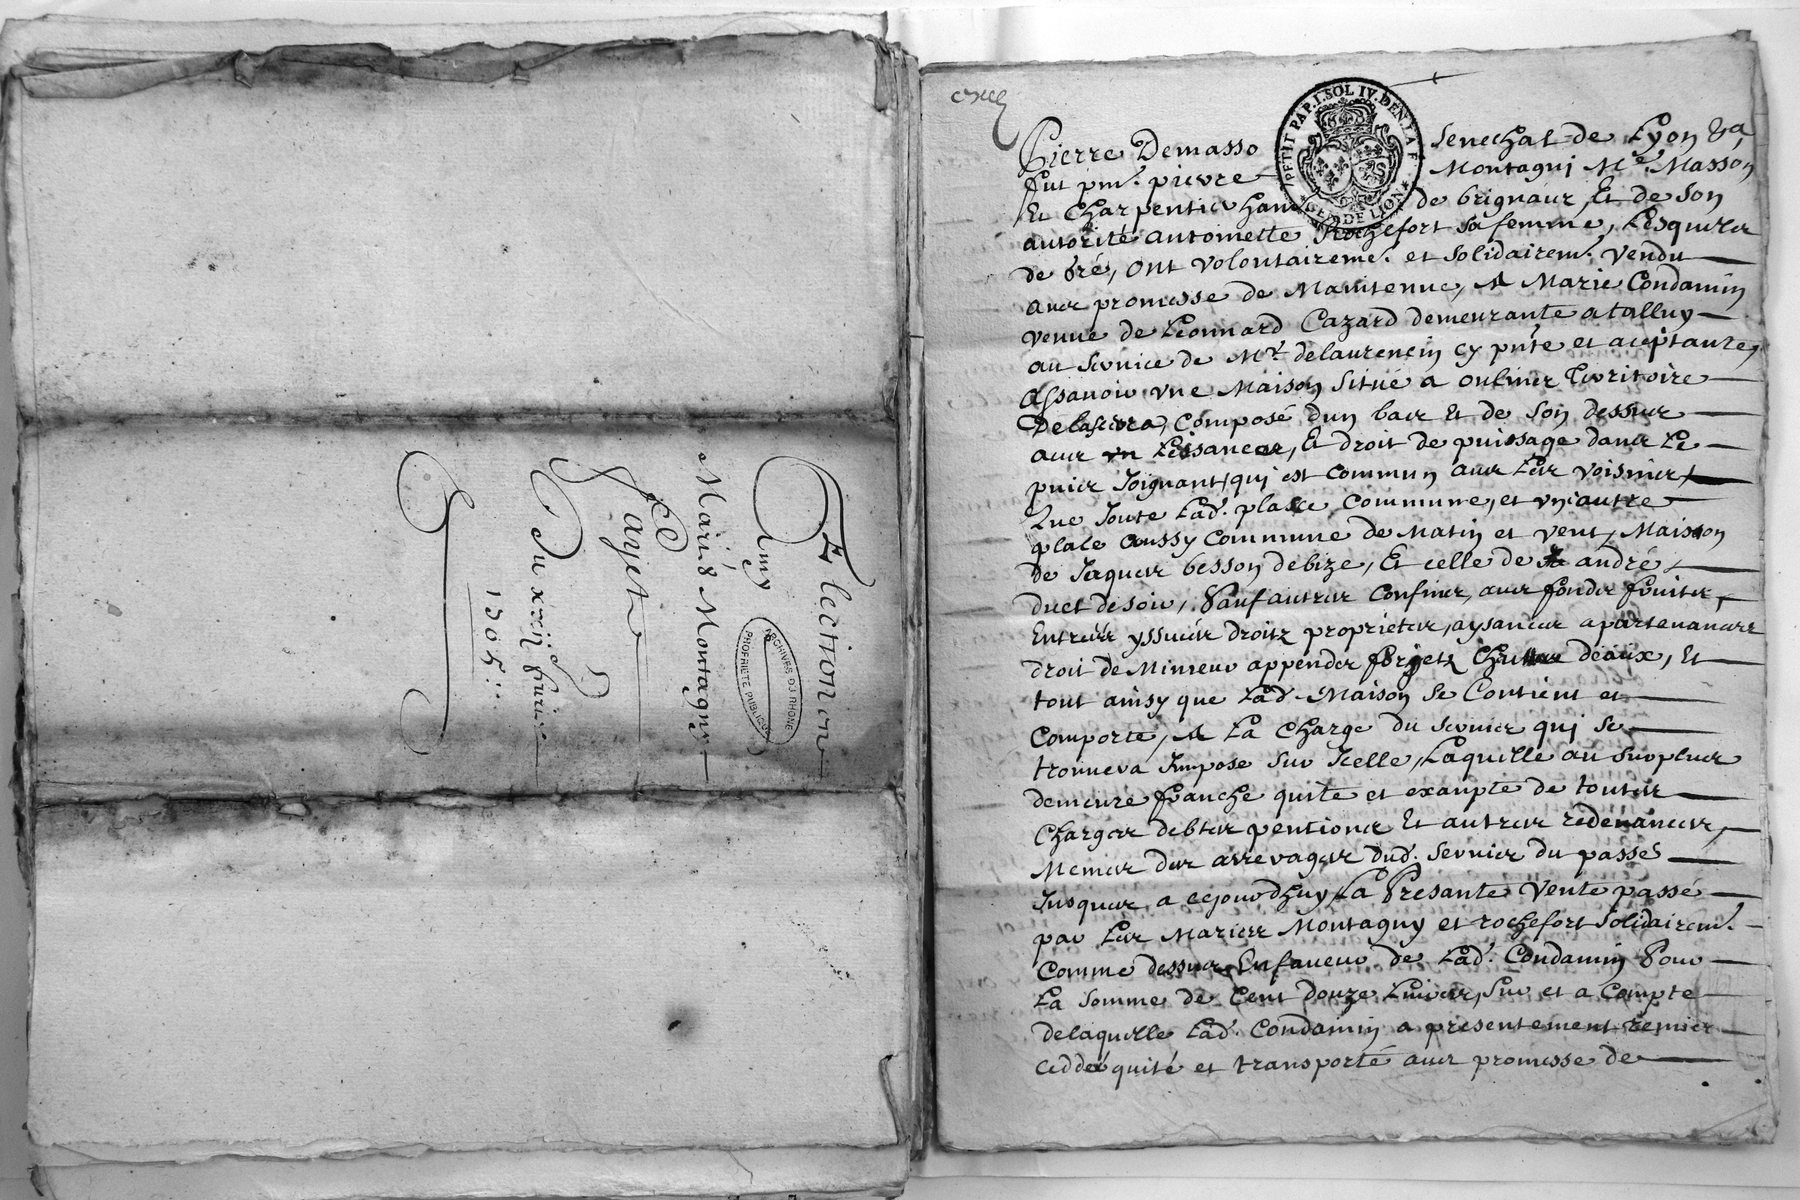 Election en
Amy
Mariés Montagny
Et
Payet
Du xxiij fevrier
1705
ARCHIVES DU RHONE
PROPRIETE PUBLIQUE
PETIT PAP. I. SOL IV. DEN. LA F.
GEN. DE LION
Pierre Demasso Senechal de Lyon &a
fut pnt. pierre Montagni Me. Masson
Et Charpentier han de brignair, Et de Son
autorité antoinette Rochefort Sa femme, Lesquels
de gré, ont volontaireme. et Solidairem. vendu
avec promesse de Maintenue, A Marie Condamin
veuve de Leonnard Cazard demeurante a talluy
au Service de Mr. delaurencin cy pnte et aceptante,
Assavoir vne Maison Situé a oulines Territoire
Delaserra, Composé d'un bas Et de Son dessus
avec vn Leissances, Et droit de puissage dans Le
puics Joignant, qui est Commun avec Les voisines,
Lue Joute Lad. place Commune, et vn autre
place aussy Commune de Matin et vent, Maison
de Jaques besson de bize, Et celle de andré
duct de soir, Sauf autres Confines, avec fondz fruites,
Entrées yssues droitz proprietes, aysances apartenances
droit de Minieur appendes forjetz deaux, Et
tout ainsy que Lad. Maison Se Contient et
Comporte, A La Charge du Servies qui Se
trouvera Impose Sur Icelle, Laquelle au Surplus
demeure franche quite et exampte de toutes
Charges debtes pentiones Et autres redevances,
Memes des arrerages dud. Servies du passé
Jusques a cejourdhuy, La Presante Vente passé
par Les Mariés Montagny et rochefort Solidairem.
Comme dessus En faveur de Lad. Condamin Pour
La Somme de Cent douze Livres, Sur et a Compte
delaquelle Lad. Condamin a presentement remies
ceddé quité et transporté avec promesse de